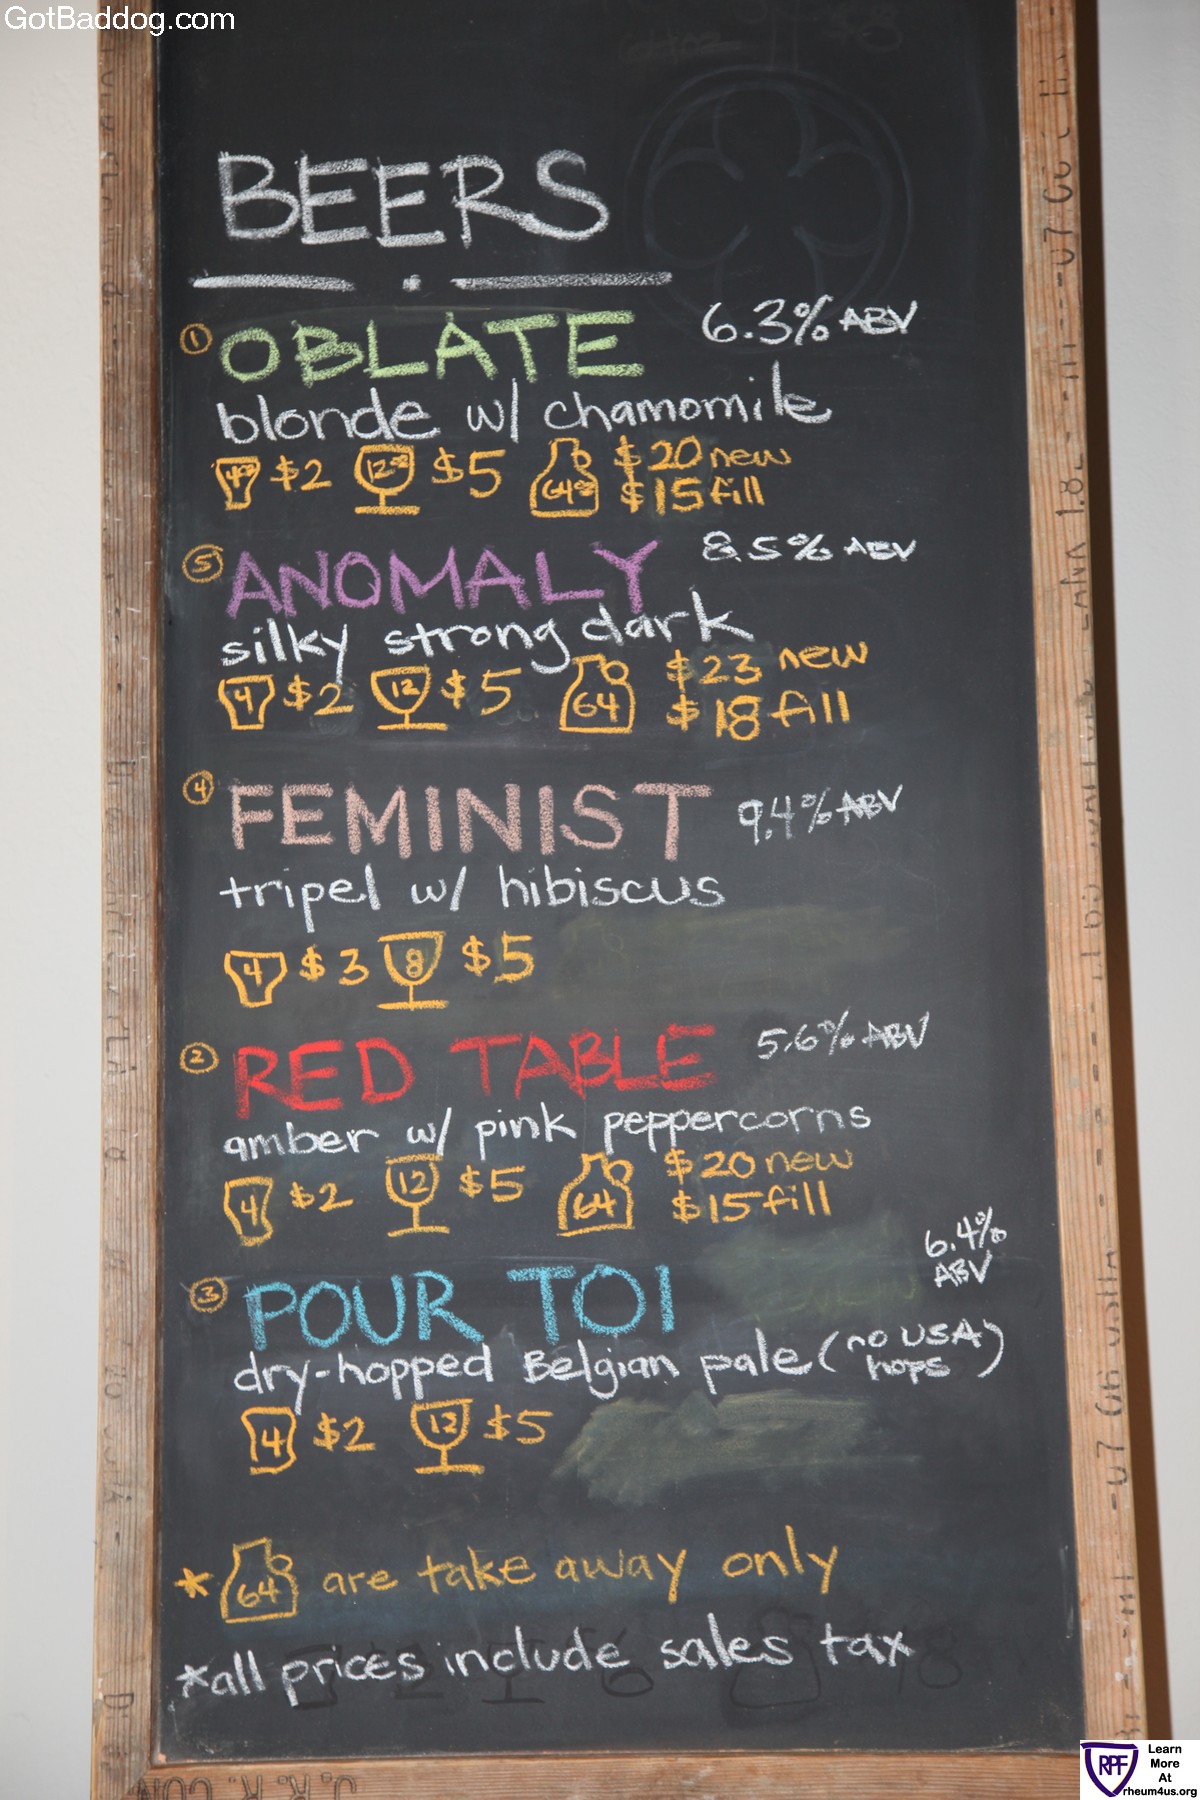 GotBaddog.com
BEERS
① OBLATE 6.3% ABV
blonde w/ chamomile
4oz $2 12oz $5 64oz $20 new
$15 fill
⑤ ANOMALY 8.5% ABV
silky strong dark
4 $2 12 $5 64 $23 new
$18 fill
④ FEMINIST 9.4% ABV
tripel w/ hibiscus
4 $3 8 $5
② RED TABLE 5.6% ABV
amber w/ pink peppercorns
4 $2 12 $5 64 $20 new
$15 fill
③ POUR TOI 6.4%
ABV
dry-hopped Belgian pale (no USA
hops)
4 $2 12 $5
* 64 are take away only
*all prices include sales tax
RPF
Learn
More
At
rheum4us.org